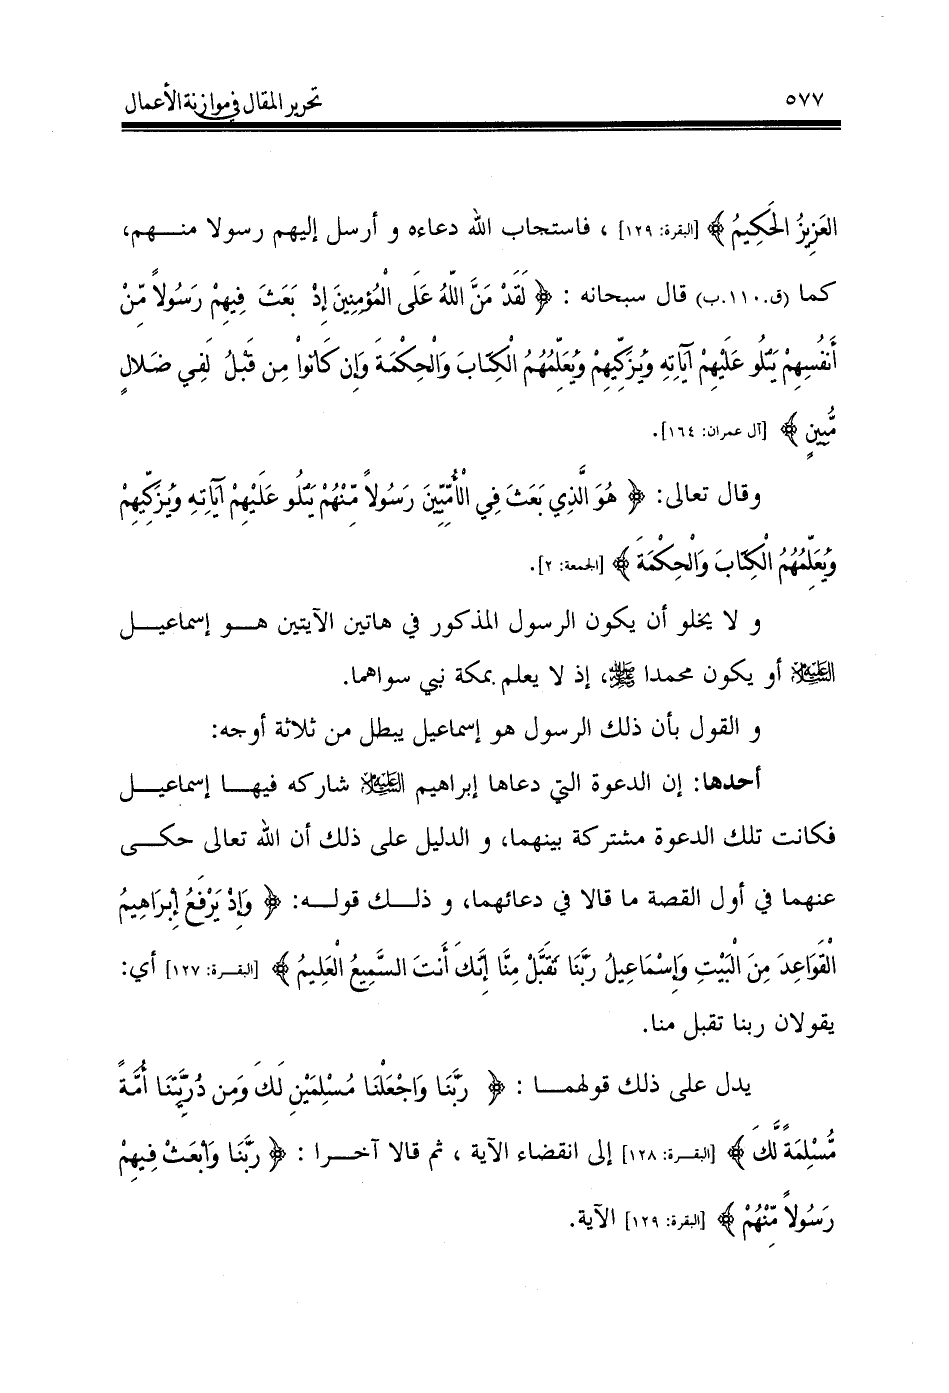 ٥٧٧ تحرير المقال في موازنة الأعمال
العَزِيزُ الحَكِيمُ ﴾ [البقرة: ١٢٩] ، فاستجاب الله دعاءه و أرسل إليهم رسولا منهم،
كما (ق.١١٠.ب) قال سبحانه : ﴿ لَقَدْ مَنَّ اللَّهُ عَلَى الْمُؤْمِنِينَ إِذْ بَعَثَ فِيهِمْ رَسُولاً مِّنْ
أَنفُسِهِمْ يَتْلُو عَلَيْهِمْ آيَاتِهِ وَيُزَكِّيهِمْ وَيُعَلِّمُهُمُ الْكِتَابَ وَالْحِكْمَةَ وَإِن كَانُواْ مِن قَبْلُ لَفِي ضَلالٍ
مُّبِينٍ ﴾ [آل عمران: ١٦٤].
وقال تعالى: ﴿ هُوَ الَّذِي بَعَثَ فِي الْأُمِّيِّينَ رَسُولاً مِّنْهُمْ يَتْلُو عَلَيْهِمْ آيَاتِهِ وَيُزَكِّيهِمْ
وَيُعَلِّمُهُمُ الْكِتَابَ وَالْحِكْمَةَ ﴾ [الجمعة: ٢].
و لا يخلو أن يكون الرسول المذكور في هاتين الآيتين هو إسماعيل
العليه السلام أو يكون محمدا ﷺ، إذ لا يعلم بمكة نبي سواهما.
و القول بأن ذلك الرسول هو إسماعيل يبطل من ثلاثة أوجه:
أحدها: إن الدعوة التي دعاها إبراهيم العليه السلام شاركه فيها إسماعيل
فكانت تلك الدعوة مشتركة بينهما، و الدليل على ذلك أن الله تعالى حكى
عنهما في أول القصة ما قالا في دعائهما، و ذلك قوله: ﴿ وَإِذْ يَرْفَعُ إِبْرَاهِيمُ
الْقَوَاعِدَ مِنَ الْبَيْتِ وَإِسْمَاعِيلُ رَبَّنَا تَقَبَّلْ مِنَّا إِنَّكَ أَنتَ السَّمِيعُ الْعَلِيمُ ﴾ [البقرة: ١٢٧] أي:
يقولان ربنا تقبل منا.
يدل على ذلك قولهما : ﴿ رَبَّنَا وَاجْعَلْنَا مُسْلِمَيْنِ لَكَ وَمِن ذُرِّيَّتِنَا أُمَّةً
مُّسْلِمَةً لَّكَ ﴾ [البقرة: ١٢٨] إلى انقضاء الآية ، ثم قالا آخرا : ﴿ رَبَّنَا وَابْعَثْ فِيهِمْ
رَسُولاً مِّنْهُمْ ﴾ [البقرة: ١٢٩] الآية.